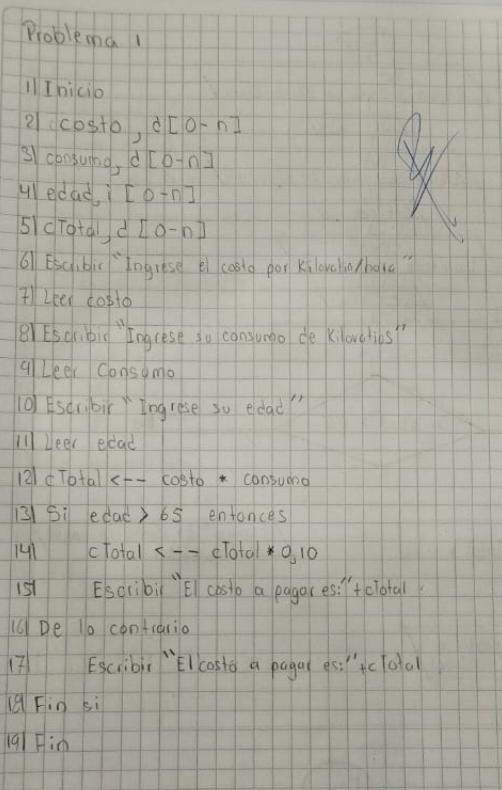 Problema 1
1) Inicio
2) costo, d [0-n]
3) consumo, d [0-n]
4) edad, i [0-n]
5) cTotal, d [0-n]
6) Escribir "Ingrese el costo por Kilovatio/hora"
7) Leer costo
8) Escribir "Ingrese su consumo de Kilovatios"
9) Leer Consumo
10) Escribir "Ingrese su edad"
11) Leer edad
12) cTotal <-- costo * consumo
13) Si edad > 65 entonces
14) cTotal <-- cTotal * 0,10
15) Escribir "El costo a pagar es:" + cTotal
16) De lo contrario
17) Escribir "El costo a pagar es:" + cTotal
18) Fin si
19) Fin